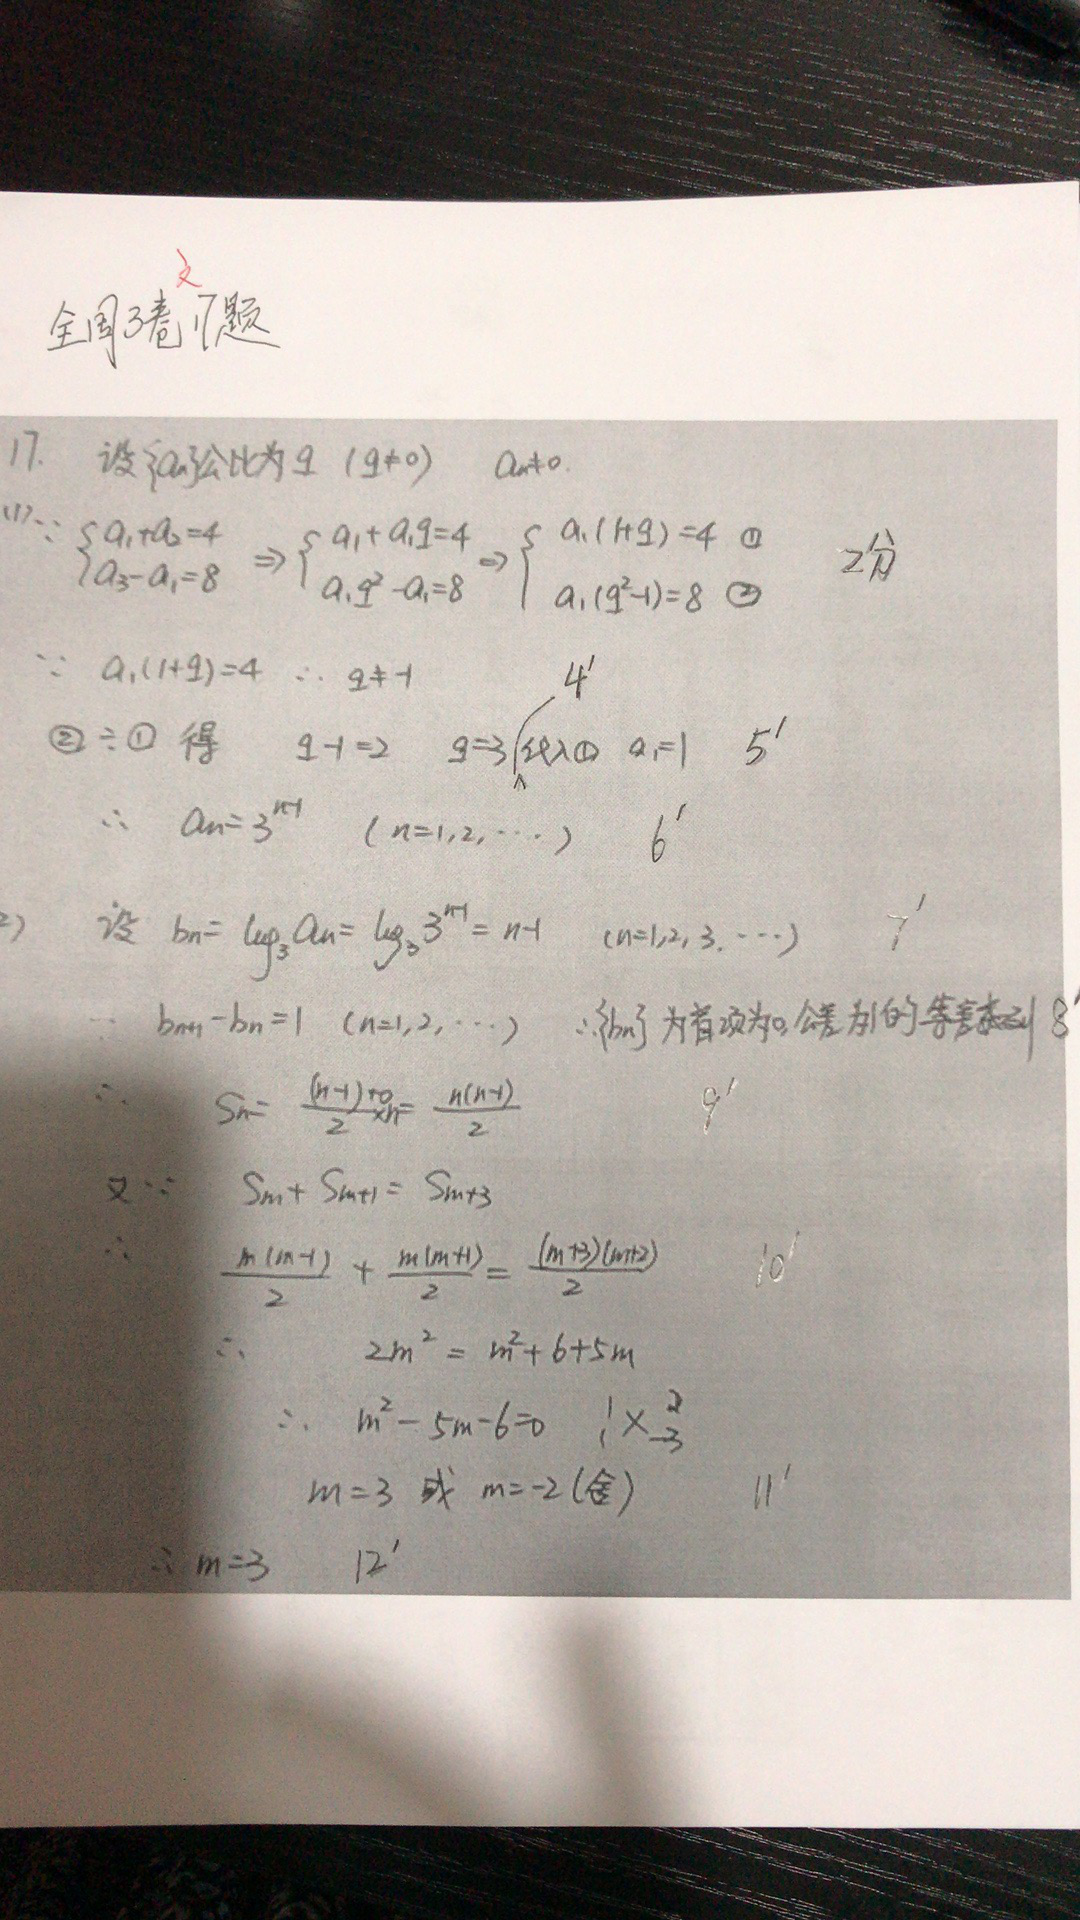 文
全国3卷17题
17. 设{an}公比为q (q≠0) an≠0.
(1) ∵ { a₁+a₂=4 a₃-a₁=8 ⇒ { a₁+a₁q=4 a₁q²-a₁=8 ⇒ { a₁(1+q)=4 ① a₁(q²-1)=8 ② 2分
∵ a₁(1+q)=4 ∴ q≠-1 4'
②÷① 得 q-1=2 q=3 代入① a₁=1 5'
∴ an=3ⁿ⁻¹ (n=1,2,⋯) 6'
2) 设 bn=log₃an=log₃3ⁿ⁻¹=n-1 (n=1,2,3,⋯) 7'
∵ bn+1-bn=1 (n=1,2,⋯) ∴{bn}为首项为0,公差为1的等差数列 8'
∴ Sn= (n-1)+0/2 ×n= n(n-1)/2 9'
又∵ Sm+Sm+1=Sm+3
∴ m(m-1)/2 + m(m+1)/2 = (m+3)(m+2)/2 10'
∴ 2m²=m²+6+5m
∴ m²-5m-6=0 1 1 × 2 -3
m=3 或 m=-2(舍) 11'
∴ m=3 12'